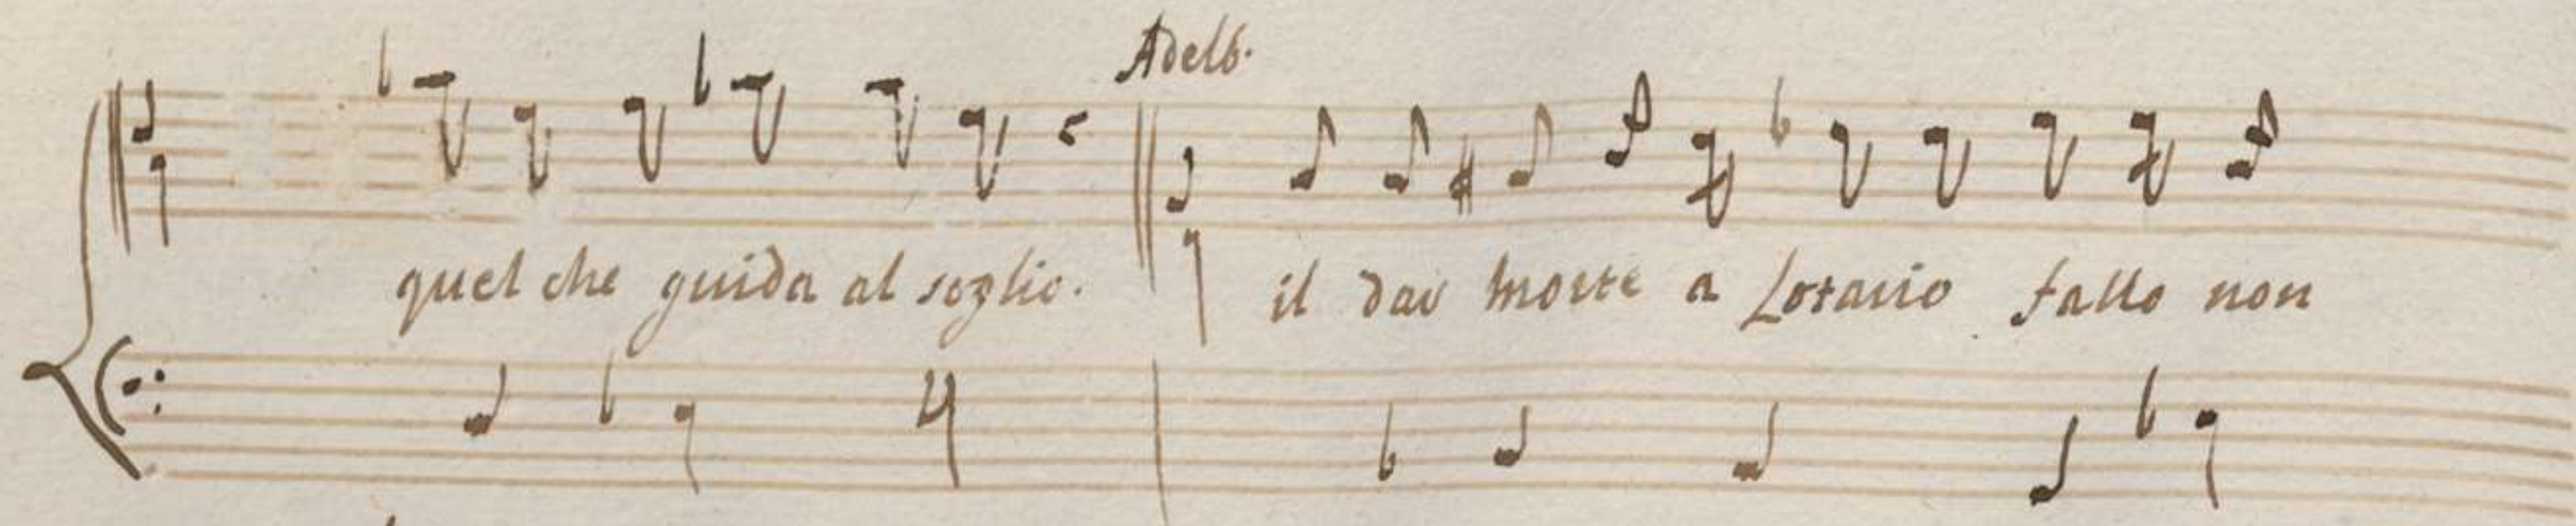 Adelb.
quel che guida al soglio. il dar morte a Lotario fallo non